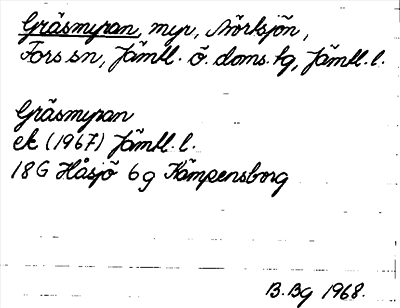 Gräsmyran, myr, Mörtsjön,
Fors sn, Jämtl. ö. doms.tg, Jämtl. l.
Gräsmyran
ek (1967) Jämtl. l.
18G Håsjö 6g Kämpensborg
B.Bg 1968.